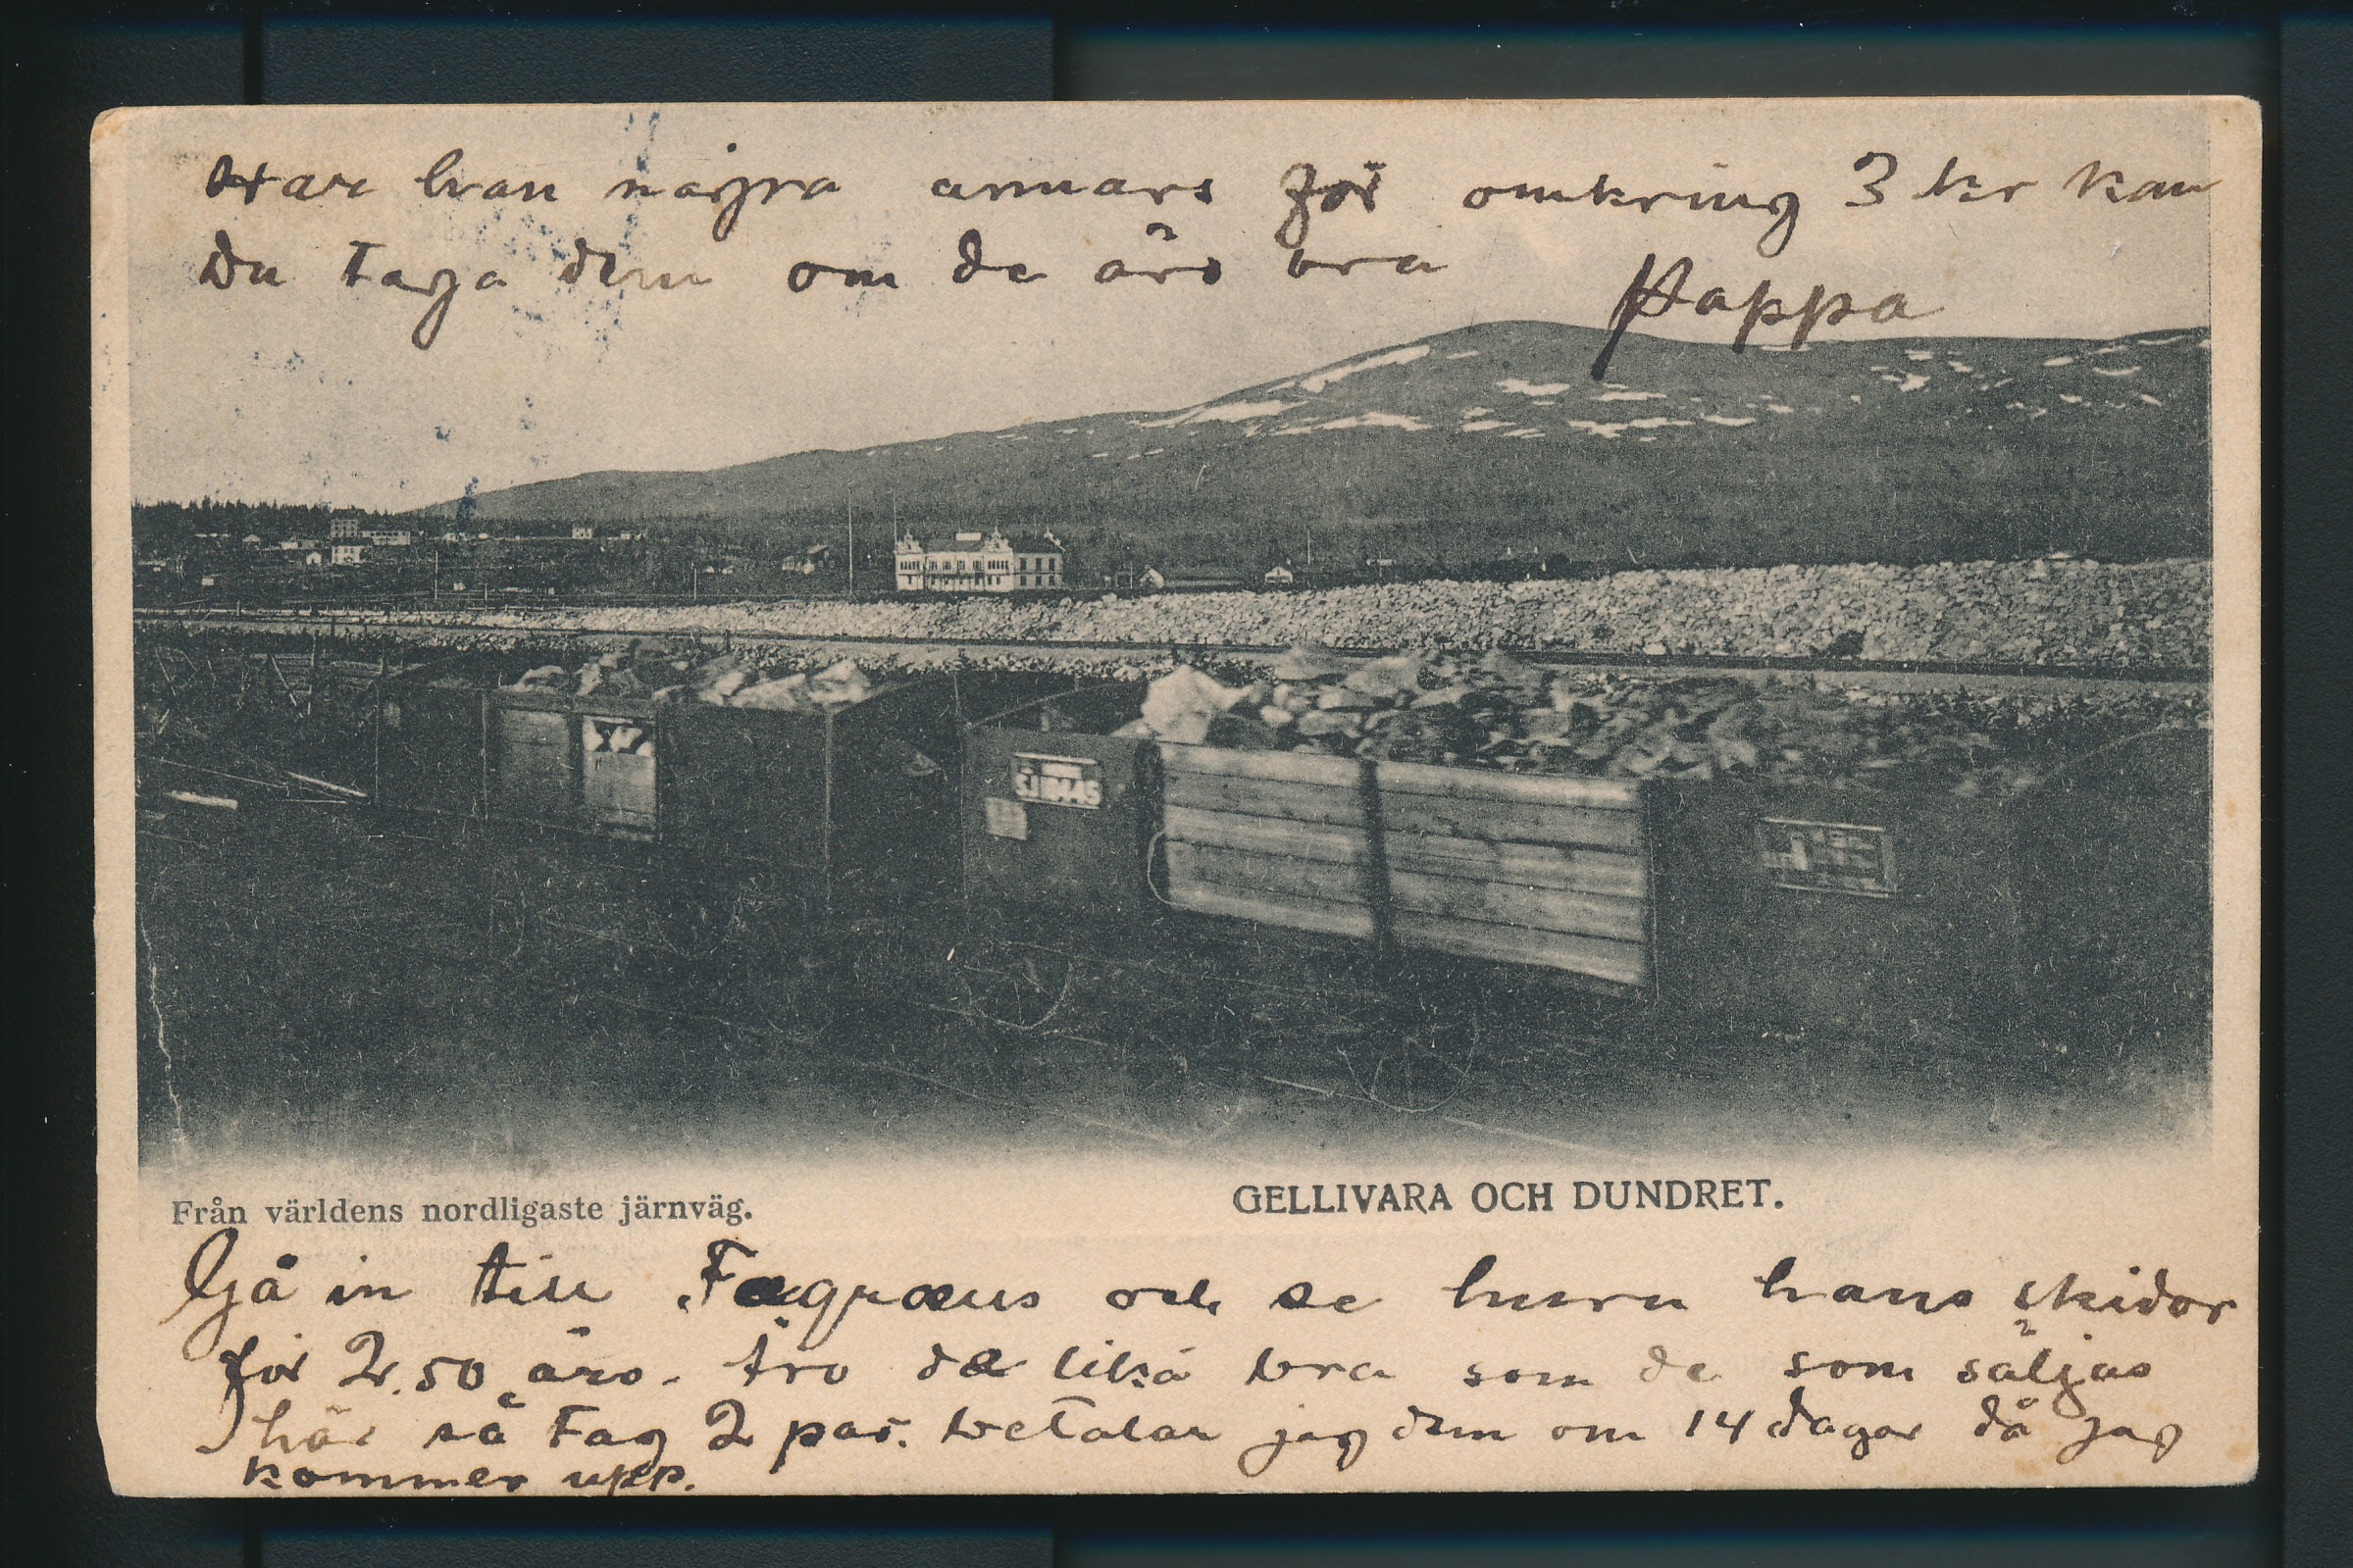 Har han några annars för omkring 3 kr kan
Du taga dem om de äro bra
Pappa
Från världens nordligaste järnväg.
GELLIVARA OCH DUNDRET.
Gå in till Fagræus och se huru hans skidor
för 2.50 äro. tro de lika bra som de som säljas
här så tag 2 par. betalar jag dem om 14 dagar då jag
kommer upp.